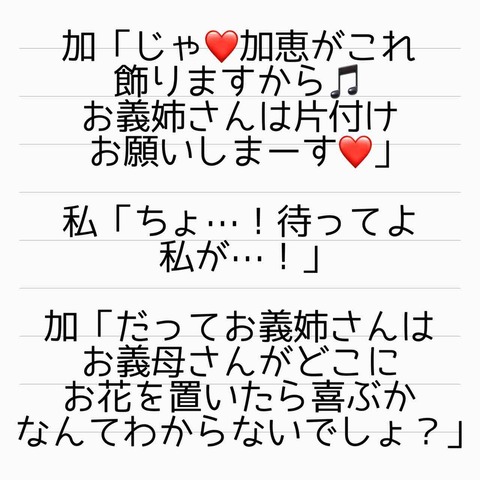 加「じゃ❤️加恵がこれ
飾りますから🎵
お義姉さんは片付け
お願いしまーす❤️」
私「ちょ…！待ってよ
私が…！」
加「だってお義姉さんは
お義母さんがどこに
お花を置いたら喜ぶか
なんてわからないでしょ？」